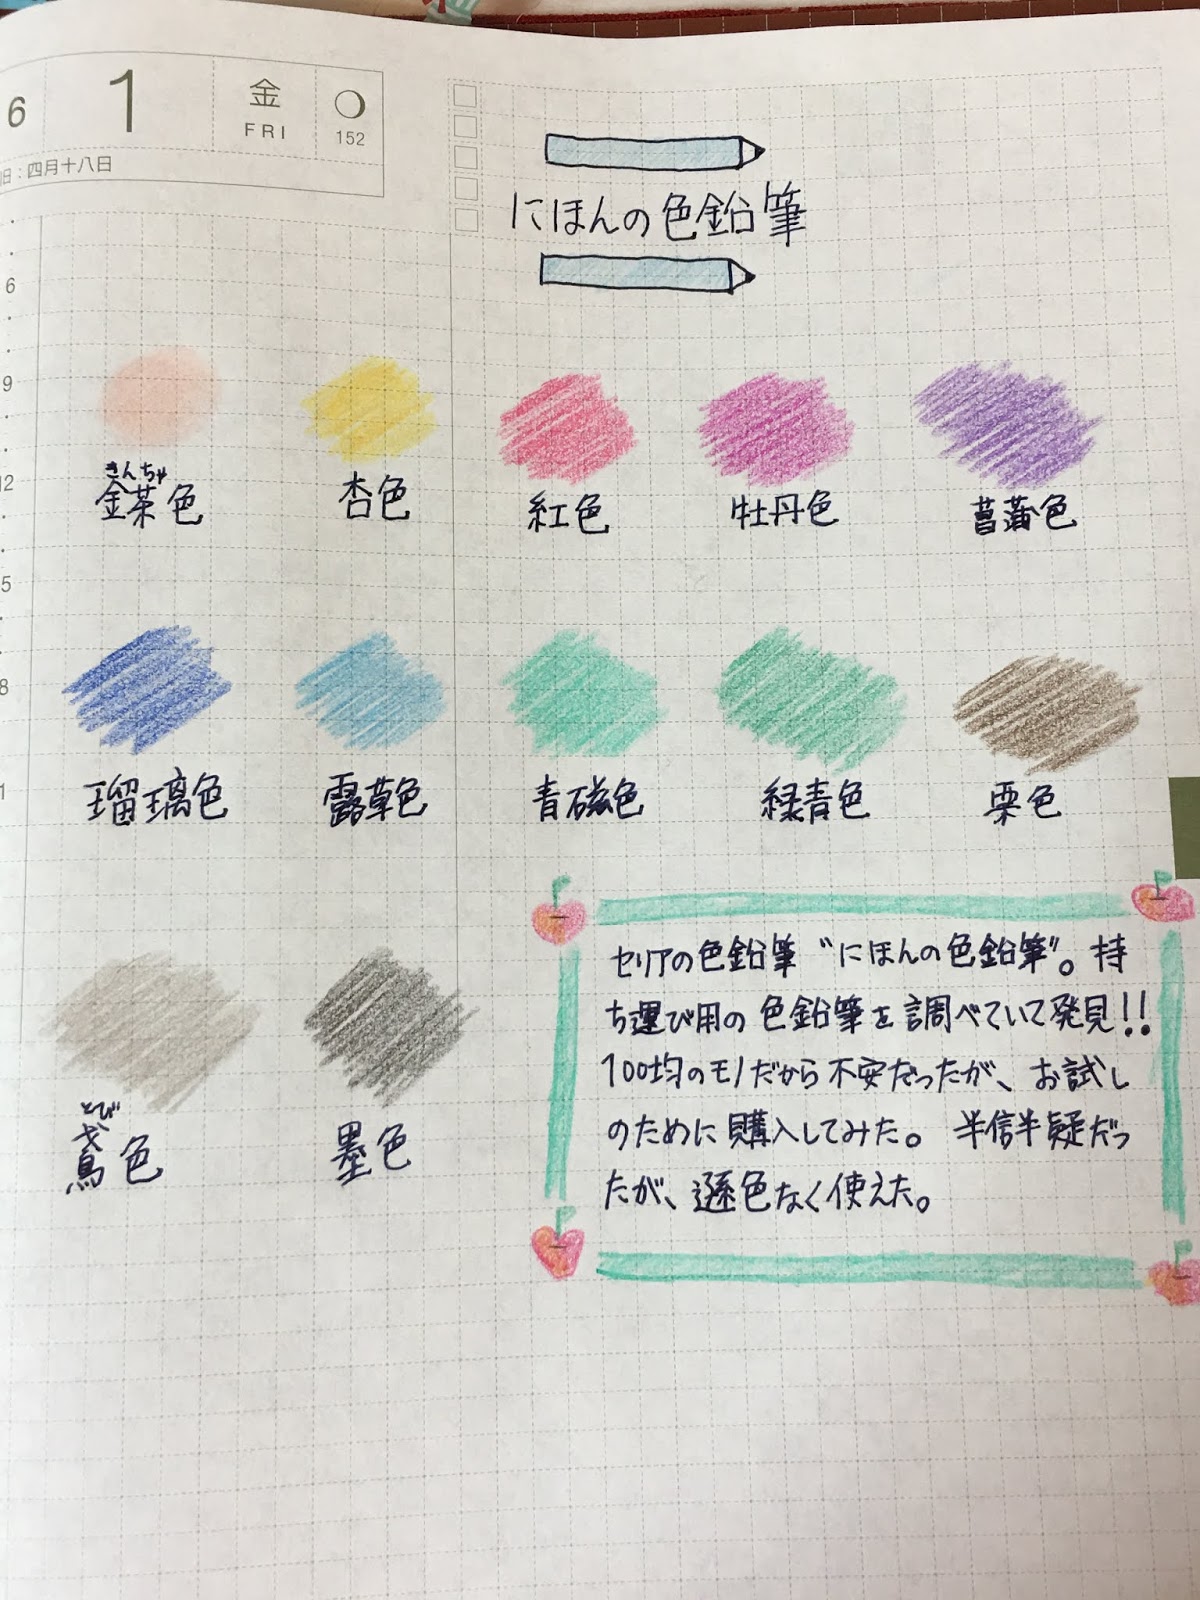 6 1 金 FRI 152
旧：四月十八日
にほんの色鉛筆
6
9
12
15
18
21
きんちゃ
金茶色 杏色 紅色 牡丹色 菖蒲色
瑠璃色 露草色 青磁色 緑青色 栗色
とび
鳶色 墨色
セリアの色鉛筆〝にほんの色鉛筆〟。持
ち運び用の色鉛筆を調べていて発見!!
100均のモノだから不安だったが、お試し
のために購入してみた。半信半疑だっ
たが、遜色なく使えた。